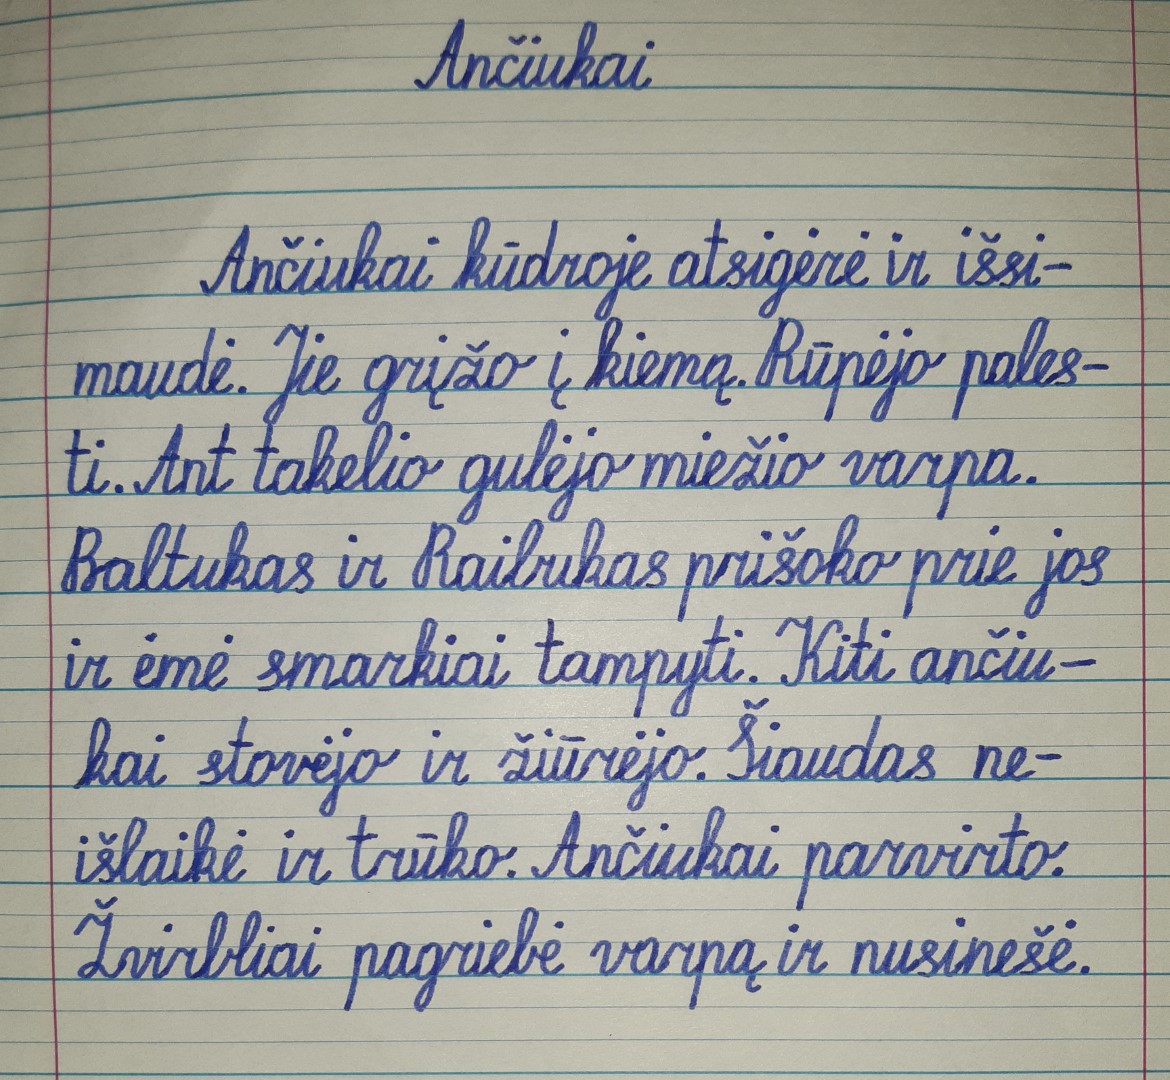 Ančiukai
Ančiukai kūdroje atsigėrė ir išsi-
maudė. Jie grįžo į kiemą. Rūpėjo pales-
ti. Ant takelio gulėjo miežio varpa.
Baltukas ir Railukas prišoko prie jos
ir ėmė smarkiai tampyti. Kiti ančiu-
kai stovėjo ir žiūrėjo. Šiaudas ne-
išlaikė ir trūko. Ančiukai parvirto.
Žvirbliai pagriebė varpą ir nusinešė.